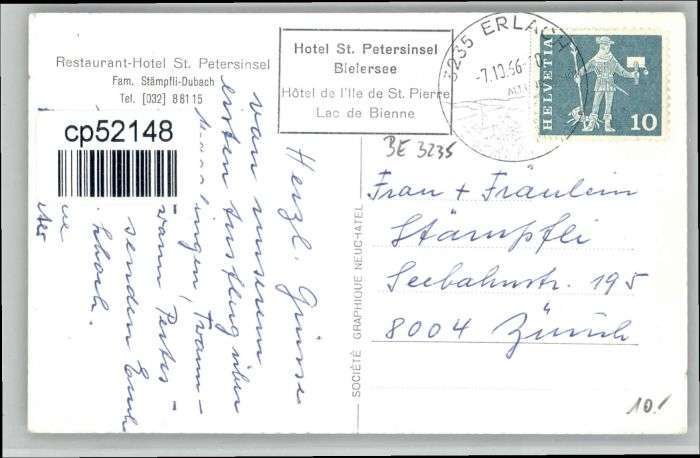 Restaurant-Hotel St. Petersinsel
Fam. Stämpfli-Dubach
Tel. [032] 88115
Hotel St. Petersinsel
Bielersee
Hôtel de l'Ile de St. Pierre
Lac de Bienne
3235 ERLACH
-7.10.66-
HELVETIA
10
cp52148
BE 3235
Herzl. Grüsse
von unserem
Ausflug über
senden Euch
SOCIÉTÉ GRAPHIQUE NEUCHATEL
Frau + Fräulein
Stämpfli
Seebahnstr. 195
8004 Zürich
10.-